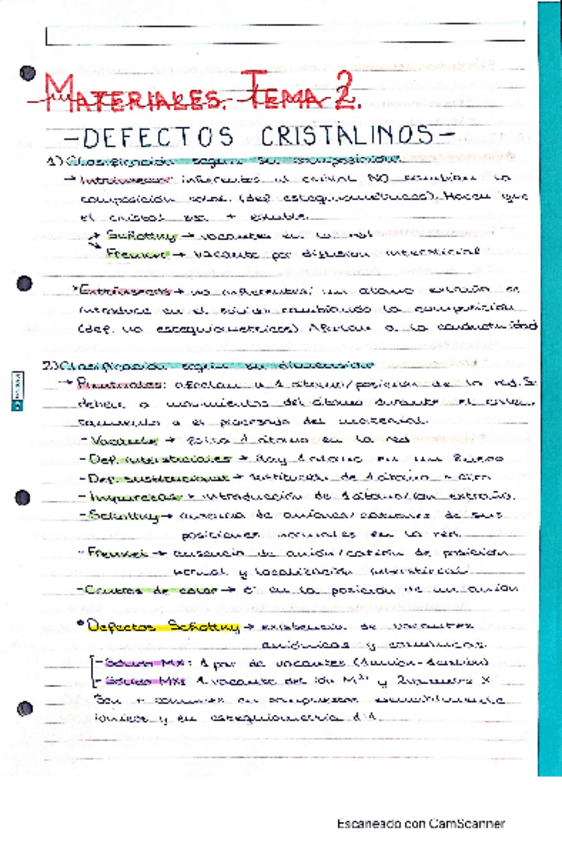 MATERIALES. TEMA 2.
-DEFECTOS CRISTALINOS-
1) Clasificación según su composición
→ Intrínsecos: inherentes al cristal NO cambian la
composición (def. estequiométricos). Hacen que
el cristal sea + estable.
→ Schottky → vacantes en la red
→ Frenkel → vacante por difusión intersticial
Extrínsecos → no inherentes; un átomo extraño se
introduce en el sólido cambiando la composición
(def. no estequiométricos). Afectan a la conductividad
2) Clasificación según su dimensión
→ Puntuales: afectan a 1 átomo/posición de la red. Se
deben a movimientos del átomo durante el
o el procesado del material.
- Vacante → falta 1 átomo en la red
- Def. intersticiales → Hay 1 átomo en un hueco
- Def. sustitucional → sustitución de 1 átomo
- Impurezas → introducción de 1 átomo/ion extraño.
- Schottky → ausencia de aniones/cationes de sus
posiciones normales en la red.
- Frenkel → ausencia de anión/catión de posición
normal y localización intersticial.
- Centros de color → e⁻ en la posición de un anión
• Defectos Schottky → existencia de vacantes
aniónicas y catiónicas.
- Sólido MX: 1 par de vacantes (1anión-1catión)
- Sólido MX₂ 1 vacante del ión M²⁺ y 2 X
Son + comunes en compuestos
iónicos y en estequiometría 1:1.
Escaneado con CamScanner